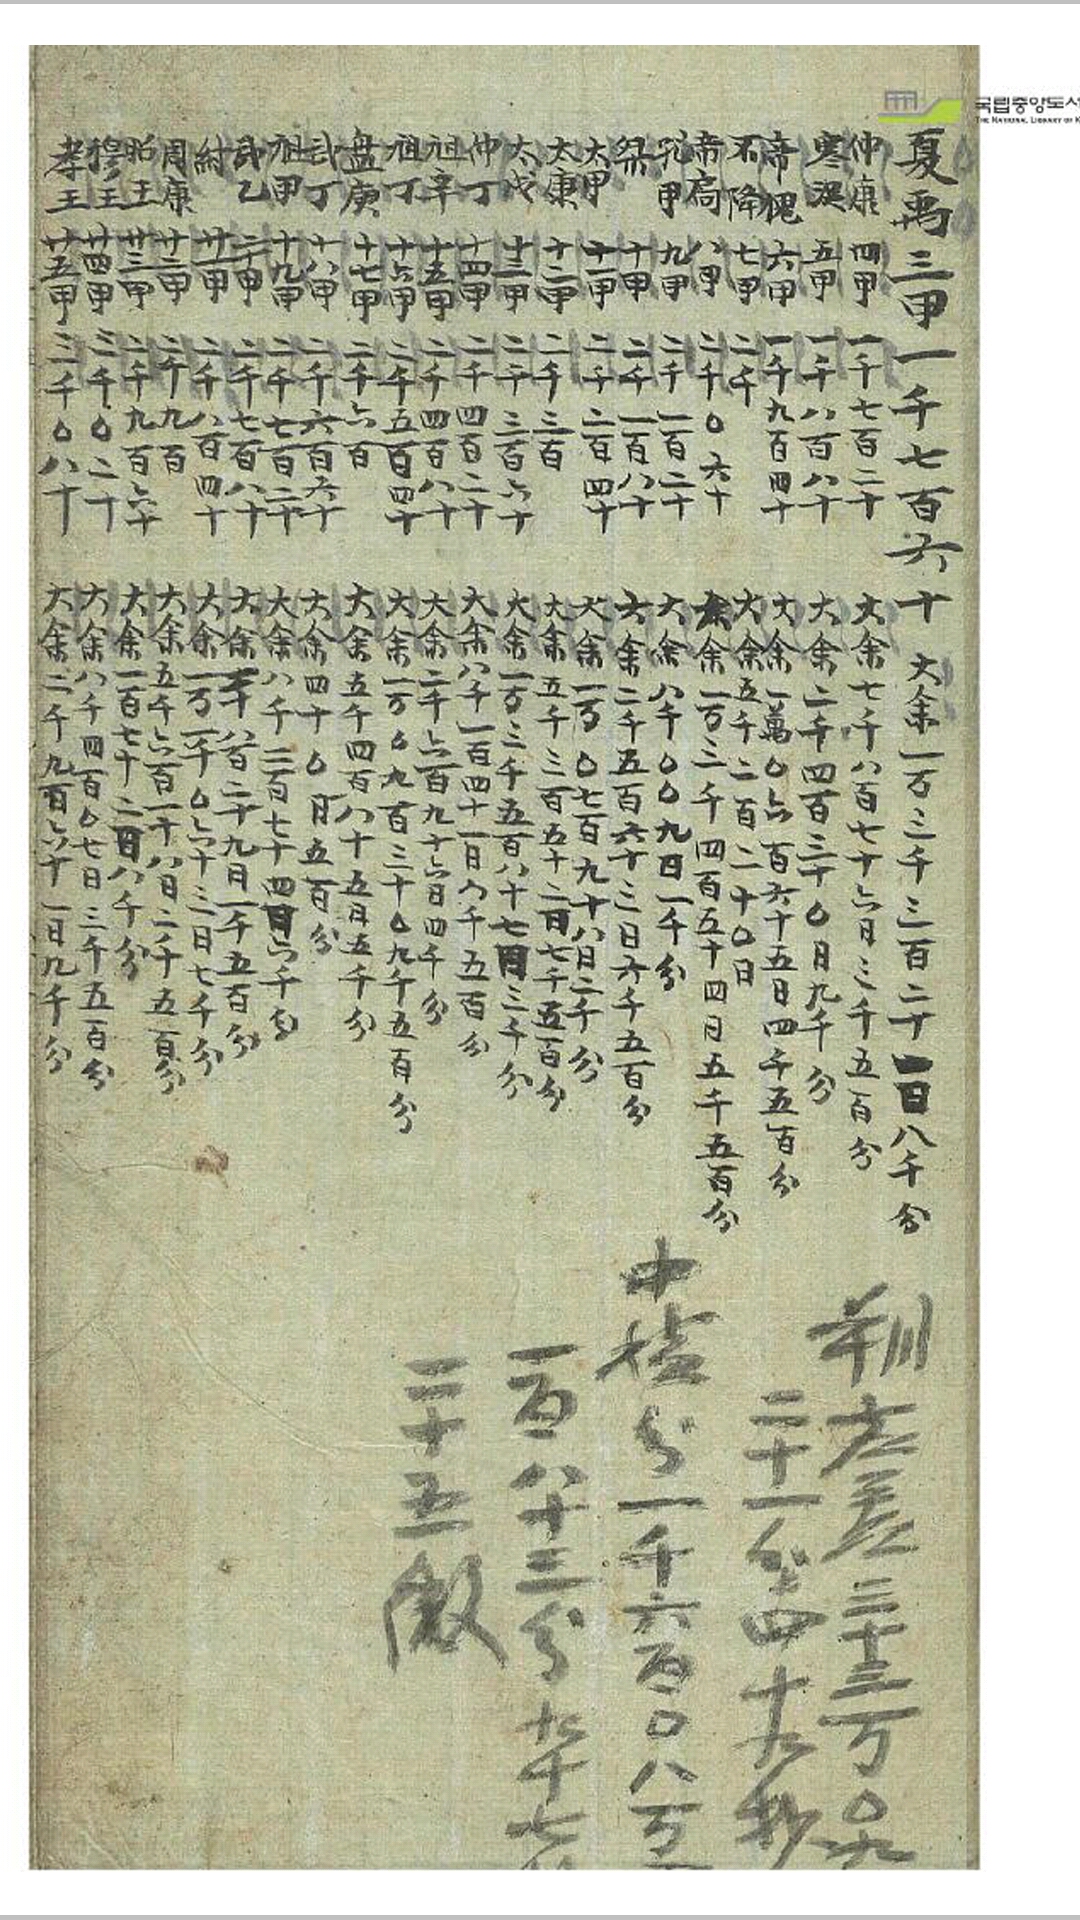 국립중앙도서
THE NATIONAL LIBRARY OF K
夏禹三甲一千七百六十 大余一万三千三百二十一日八千分
仲康四甲一千七百二十 大余七千八百七十六日三千五百分
寒浞五甲一千八百八十 大余二千四百三十〇日九千分
帝槐六甲一千九百四十 大余一萬〇六百六十五日四千五百分
不降七甲二千 大余五千二百二十〇日
帝扃八甲二千〇六十 大余一万三千四百五十四日五千五百分
孔甲九甲二千一百二十 大余八千〇〇九日一千分
桀十甲二千一百八十 大余二千五百六十三日六千五百分
太甲十一甲二千二百四十 大余一万〇七百九十八日二千分
太康十二甲二千三百 大余五千三百五十二日七千五百分
太戊十三甲二千三百六十 大余一万三千五百八十七日三千分
仲丁十四甲二千四百二十 大余八千一百四十一日八千五百分
祖辛十五甲二千四百八十 大余二千六百九十六日四千分
祖丁十六甲二千五百四十 大余一万〇九百三十〇九千五百分
盘庚十七甲二千六百 大余五千四百八十五日五千分
武丁十八甲二千六百六十 大余四十〇日五百分
祖甲十九甲二千七百二十 大余八千二百七十四日六千分
武乙二十甲二千七百八十 大余二千八百二十九日一千五百分
紂廿一甲二千八百四十 大余一万一千〇六十三日七千分
周康廿二甲二千九百 大余五千六百一十八日二千五百分
昭王廿三甲二千九百六十 大余一百七十二日八千分
穆王廿四甲三千〇二十 大余八千四百〇七日三千五百分
孝王廿五甲三千〇八十 大余二千九百六十一日九千分
朔 差三十三万〇九
二十一分四十九秒
中積分一千六百〇八万
一百八十三分九十七
三十五微